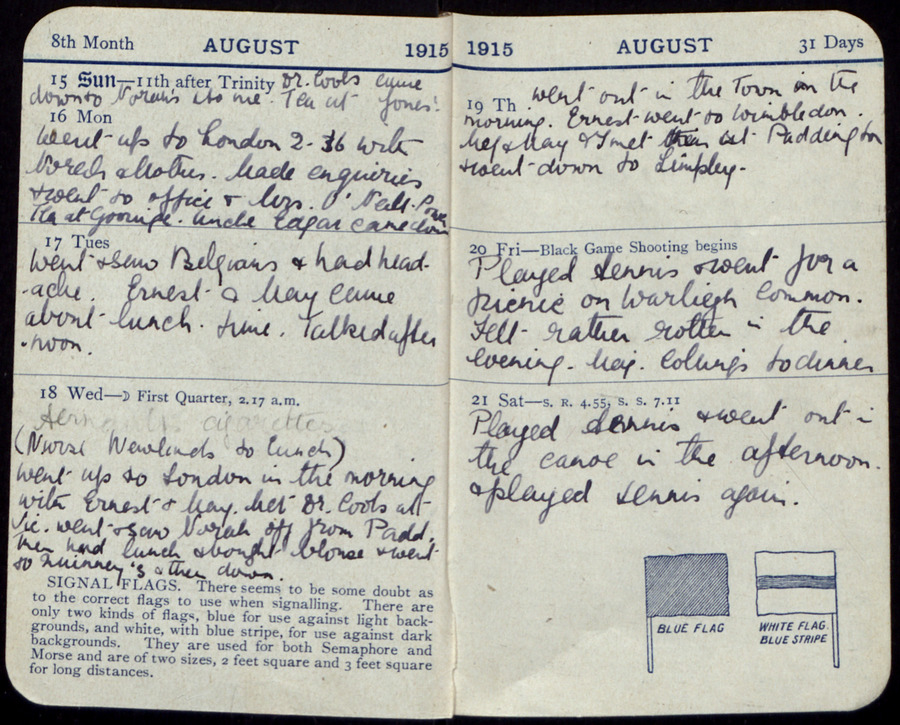 8th Month AUGUST 1915
15 Sun—11th after Trinity Dr. Cools came
down to Norah's & to me. Tea at Jones'.
16 Mon
Went up to London 2-36 with
Norah & Mother. Made enquiries
& went to office & Mrs. O'Neill-Power
Tea at Gooringe. Uncle Edgar came down
17 Tues
Went & saw Belgians & had head-
-ache. Ernest & May came
about lunch. time. Talked after
-noon.
18 Wed—☽ First Quarter, 2.17 a.m.
cigarettes
(Nurse Newlands to lunch)
Went up to London in the morning
with Ernest & May. Met Dr. Cools at
Vic. went & saw Norah off from Padd.
then had lunch & bought blouse & went
to & then down.
SIGNAL FLAGS. There seems to be some doubt as
to the correct flags to use when signalling. There are
only two kinds of flags, blue for use against light back-
grounds, and white, with blue stripe, for use against dark
backgrounds. They are used for both Semaphore and
Morse and are of two sizes, 2 feet square and 3 feet square
for long distances.
1915 AUGUST 31 Days
19 Th went out in the Town in the
morning. Ernest went to Wimbledon.
& May & I met them at Paddington
& went down to Limpley.
20 Fri—Black Game Shooting begins
Played tennis & went for a
picnic on Warliegh Common.
Felt rather rotten in the
evening. Maj. Collings to dinner
21 Sat—S. R. 4.55, S. S. 7.11
Played tennis & went out in
the canoe in the afternoon.
& played tennis again.
BLUE FLAG
WHITE FLAG.
BLUE STRIPE